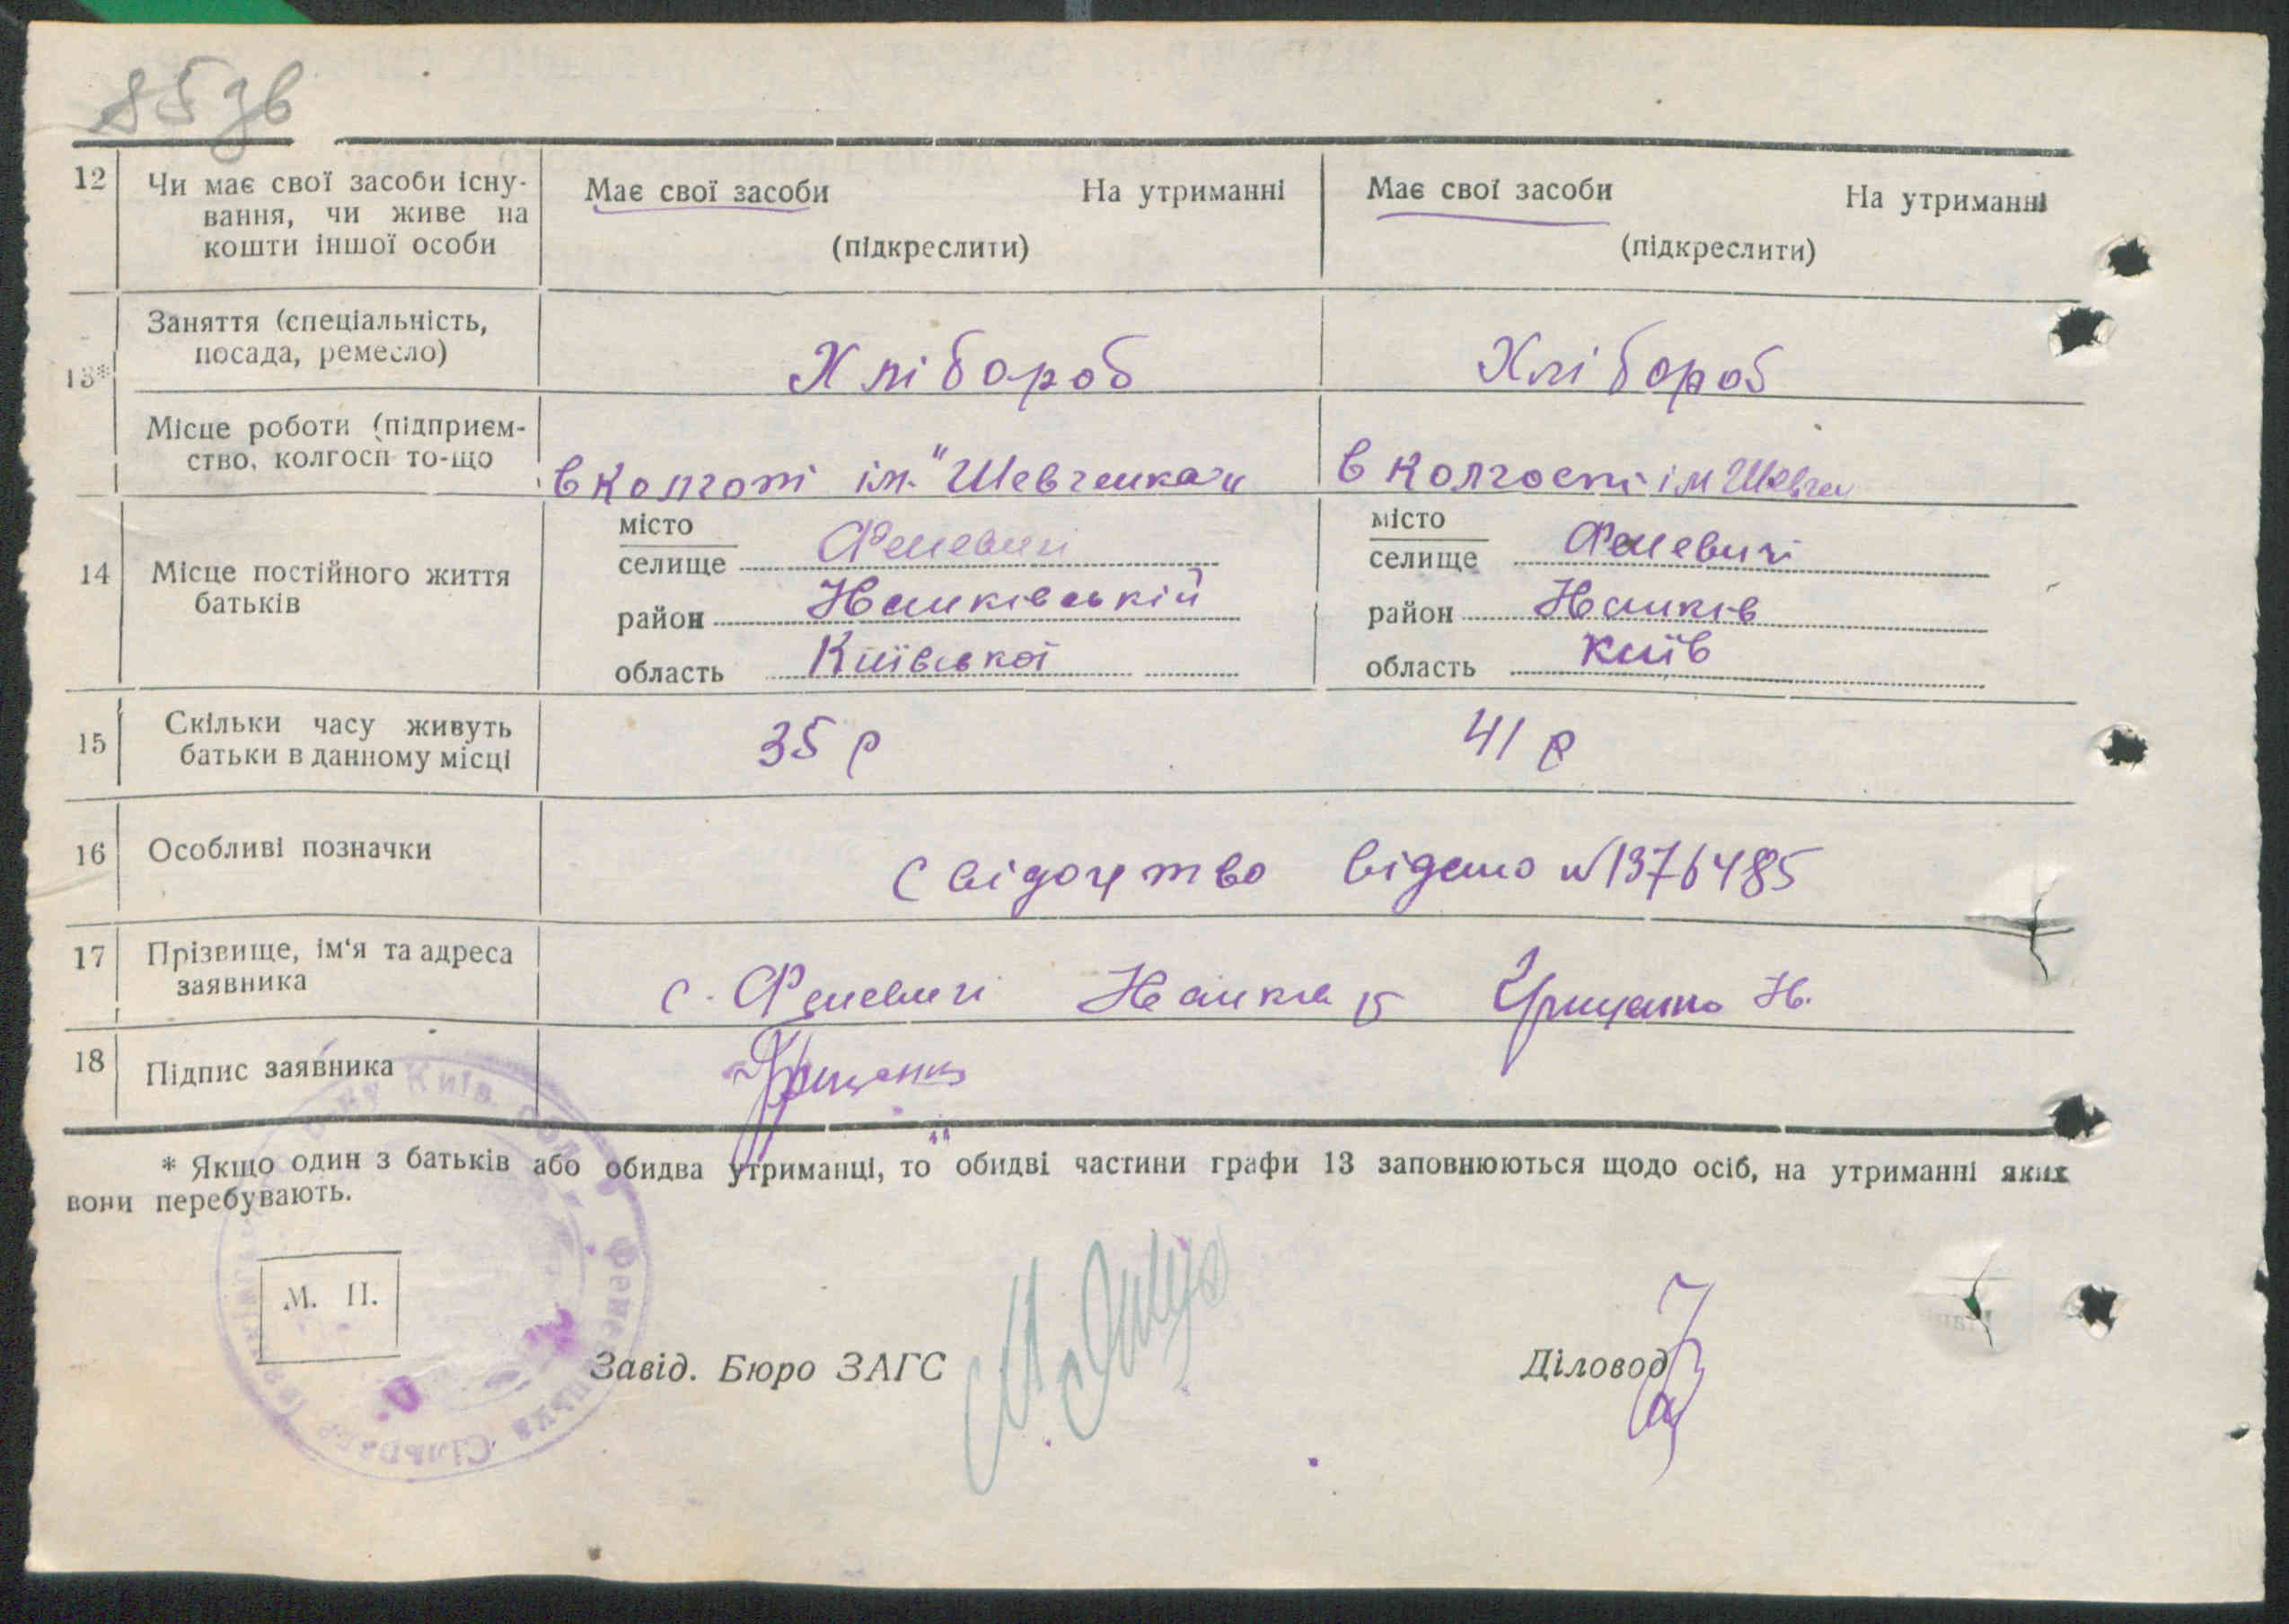 85 зв
12 Чи має свої засоби існу- Має свої засоби На утриманні Має свої засоби На утриманні
вання, чи живе на
кошти іншої особи (підкреслити) (підкреслити)
13* Заняття (спеціальність,
посада, ремесло) Хлібороб Хлібороб
Місце роботи (підприєм-
ство, колгосп то-що в колгопі ім. "Шевченка" в колгоспі ім Шевчен
місто місто
селище Феневичі селище Феневичі
14 Місце постійного життя
батьків район Іванківській район Іванків
область Київської область Київ
15 Скільки часу живуть
батьки в данному місці 35 р 41 р
16 Особливі позначки Свідоцтво відано №1376485
17 Прізвище, ім'я та адреса
заявника с. Феневичі Грищенко
18 Підпис заявника Грищенко
* Якщо один з батьків або обидва утриманці, то обидві частини графи 13 заповнюються щодо осіб, на утриманні яких
вони перебувають.
М. П.
Завід. Бюро ЗАГС Діловод
Київ. обл. Феневицька Сільрада